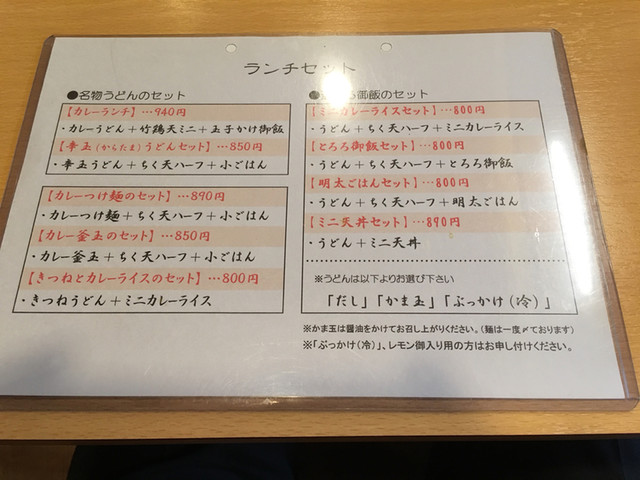 ランチセット
●名物うどんのセット
【カレーランチ】…940円
・カレーうどん＋竹鶏天ミニ＋玉子かけ御飯
【辛玉（からたま）うどんセット】…850円
・辛玉うどん＋ちく天ハーフ＋小ごはん
【カレーつけ麺のセット】…890円
・カレーつけ麺＋ちく天ハーフ＋小ごはん
【カレー釜玉のセット】…850円
・カレー釜玉＋ちく天ハーフ＋小ごはん
【きつねとカレーライスのセット】…800円
・きつねうどん＋ミニカレーライス
御飯のセット
【ミニカレーライスセット】…800円
・うどん＋ちく天ハーフ＋ミニカレーライス
【とろろ御飯セット】…800円
・うどん＋ちく天ハーフ＋とろろ御飯
【明太ごはんセット】…800円
・うどん＋ちく天ハーフ＋明太ごはん
【ミニ天丼セット】…890円
・うどん＋ミニ天丼
※うどんは以下よりお選び下さい
「だし」「かま玉」「ぶっかけ（冷）」
※かま玉は醤油をかけてお召し上がりください。（麺は一度〆ております）
※「ぶっかけ（冷）」、レモン御入り用の方はお申し付けください。